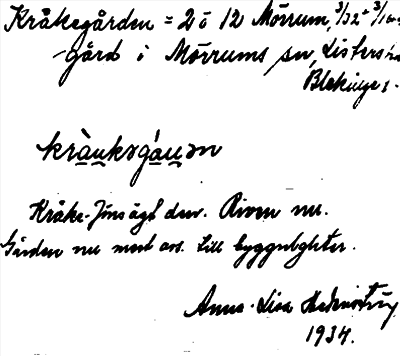 Kråkegården = 2 o 12 Mörrum, 3/32 + 3/
gård i Mörrums sn, Listers
Blekinge
kràuksgáuən
Kråke-Jöns ägt den. Riven nu.
Gården nu mest avs. till byggnadstomter.
Anna-Lisa
1934.